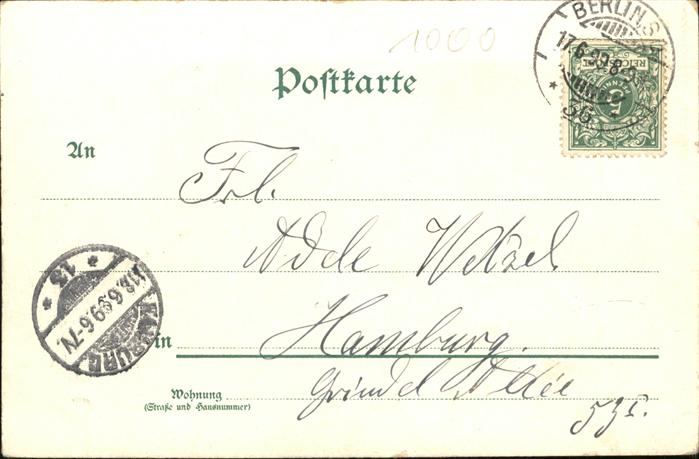 1000
BERLIN.S.
17.6.99.8-9
* 36
REICHSPOST
5
Postkarte
An
Frl.
Adele Wetzel
in Hamburg.
Grindel Allée
53 I.
Wohnung
(Straße und Hausnummer)
* 13 *
18.6.99.6-7N.
HAMBURG